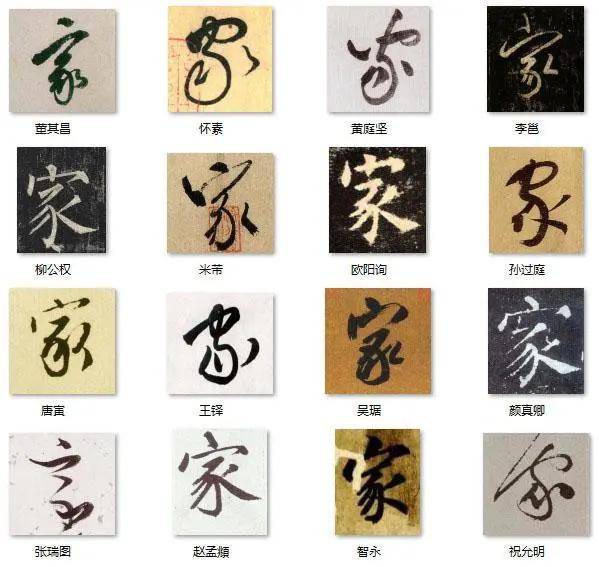 家 家 家 家
董其昌 怀素 黄庭坚 李邕
家 家 家 家
柳公权 米芾 欧阳询 孙过庭
家 家 家 家
唐寅 王铎 吴琚 颜真卿
家 家 家 家
张瑞图 赵孟頫 智永 祝允明